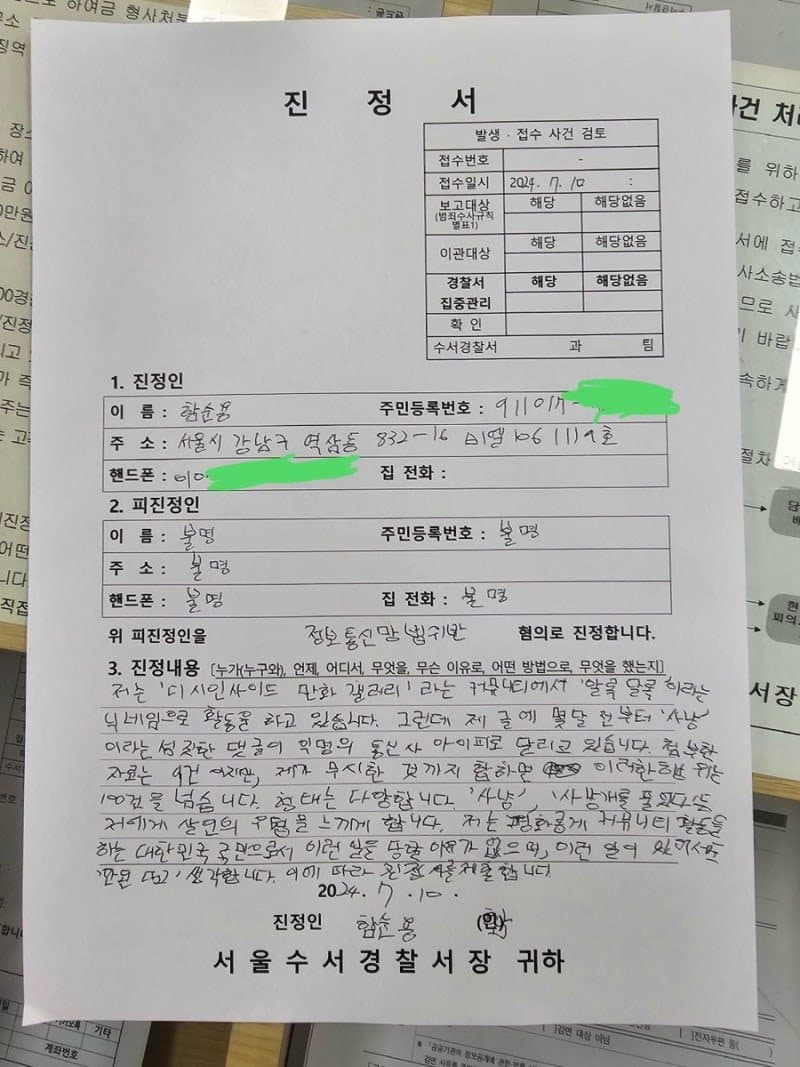 진 정 서
발생 · 접수 사건 검토
접수번호 -
접수일시 2024. 7. 10 :
보고대상 해당 해당없음
(범죄수사규칙
별표1)
이관대상 해당 해당없음
경찰서 해당 해당없음
집중관리
확 인
수서경찰서 과 팀
1. 진정인
이 름 : 함순용 주민등록번호 : 911017-
주 소 : 서울시 강남구 역삼동 832-16 1119호
핸드폰 : 010- 집 전화 :
2. 피진정인
이 름 : 불명 주민등록번호 : 불명
주 소 : 불명
핸드폰 : 불명 집 전화 : 불명
위 피진정인을 정보통신망법위반 혐의로 진정합니다.
3. 진정내용 [누가(누구와), 언제, 어디서, 무엇을, 무슨 이유로, 어떤 방법으로, 무엇을 했는지]
저는 '디시인사이드 만화 갤러리' 라는 커뮤니티에서 '알록달록'이라는
닉네임으로 활동을 하고 있습니다. 그런데 제 글에 몇달 전부터 '사냥'
이라는 섬찟한 댓글이 익명의 통신사 아이피로 달리고 있습니다. 첨부한
자료는 9건 이지만, 제가 무시한 것까지 합하면 이러한 행위는
100건을 넘습니다. 형태는 다양합니다. '사냥', '사냥개를 풀었다' 등
저에게 살인의 위험을 느끼게 합니다. 저는 평화롭게 커뮤니티 활동을
하는 대한민국 국민으로서 이런 일을 당할 이유가 없으며, 이런 일이 있어서는
안된 다고 생각합니다. 이에 따라 진정서를 제출합니다.
2024. 7. 10.
진정인 함순용 (인)
서 울 수 서 경 찰 서 장 귀 하